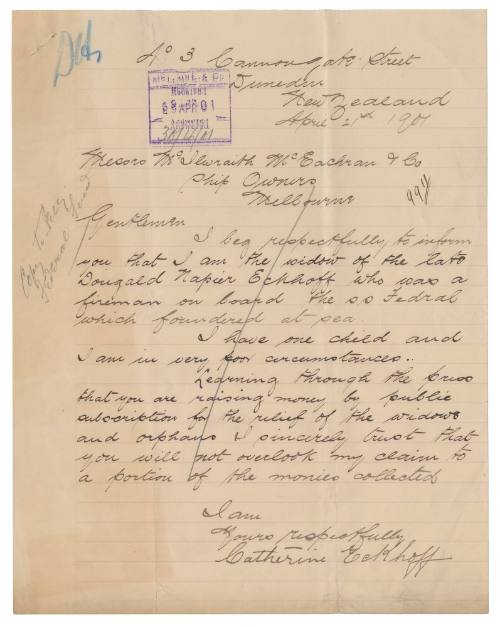 No 3 Cannongate Street
Dunedin
New Zealand
April 2nd 1901
29 APR 01
30/4/01
Messrs McIlwraith McEachran & Co
Ship Owners
Melbourne
994
Gentlemen
I beg respectfully to inform
you that I am the widow of the late
Dougald Napier Eckhoff who was a
fireman on board the ss Fedral
which foundered at sea.
I have one child and
I am in very poor circumstances..
Learning through the press
that you are raising money by public
subscription for the relief of the widows
and orphans I sincerely trust that
you will not overlook my claim to
a portion of the monies collected
I am
Yours respectfully
Catherine Eckhoff